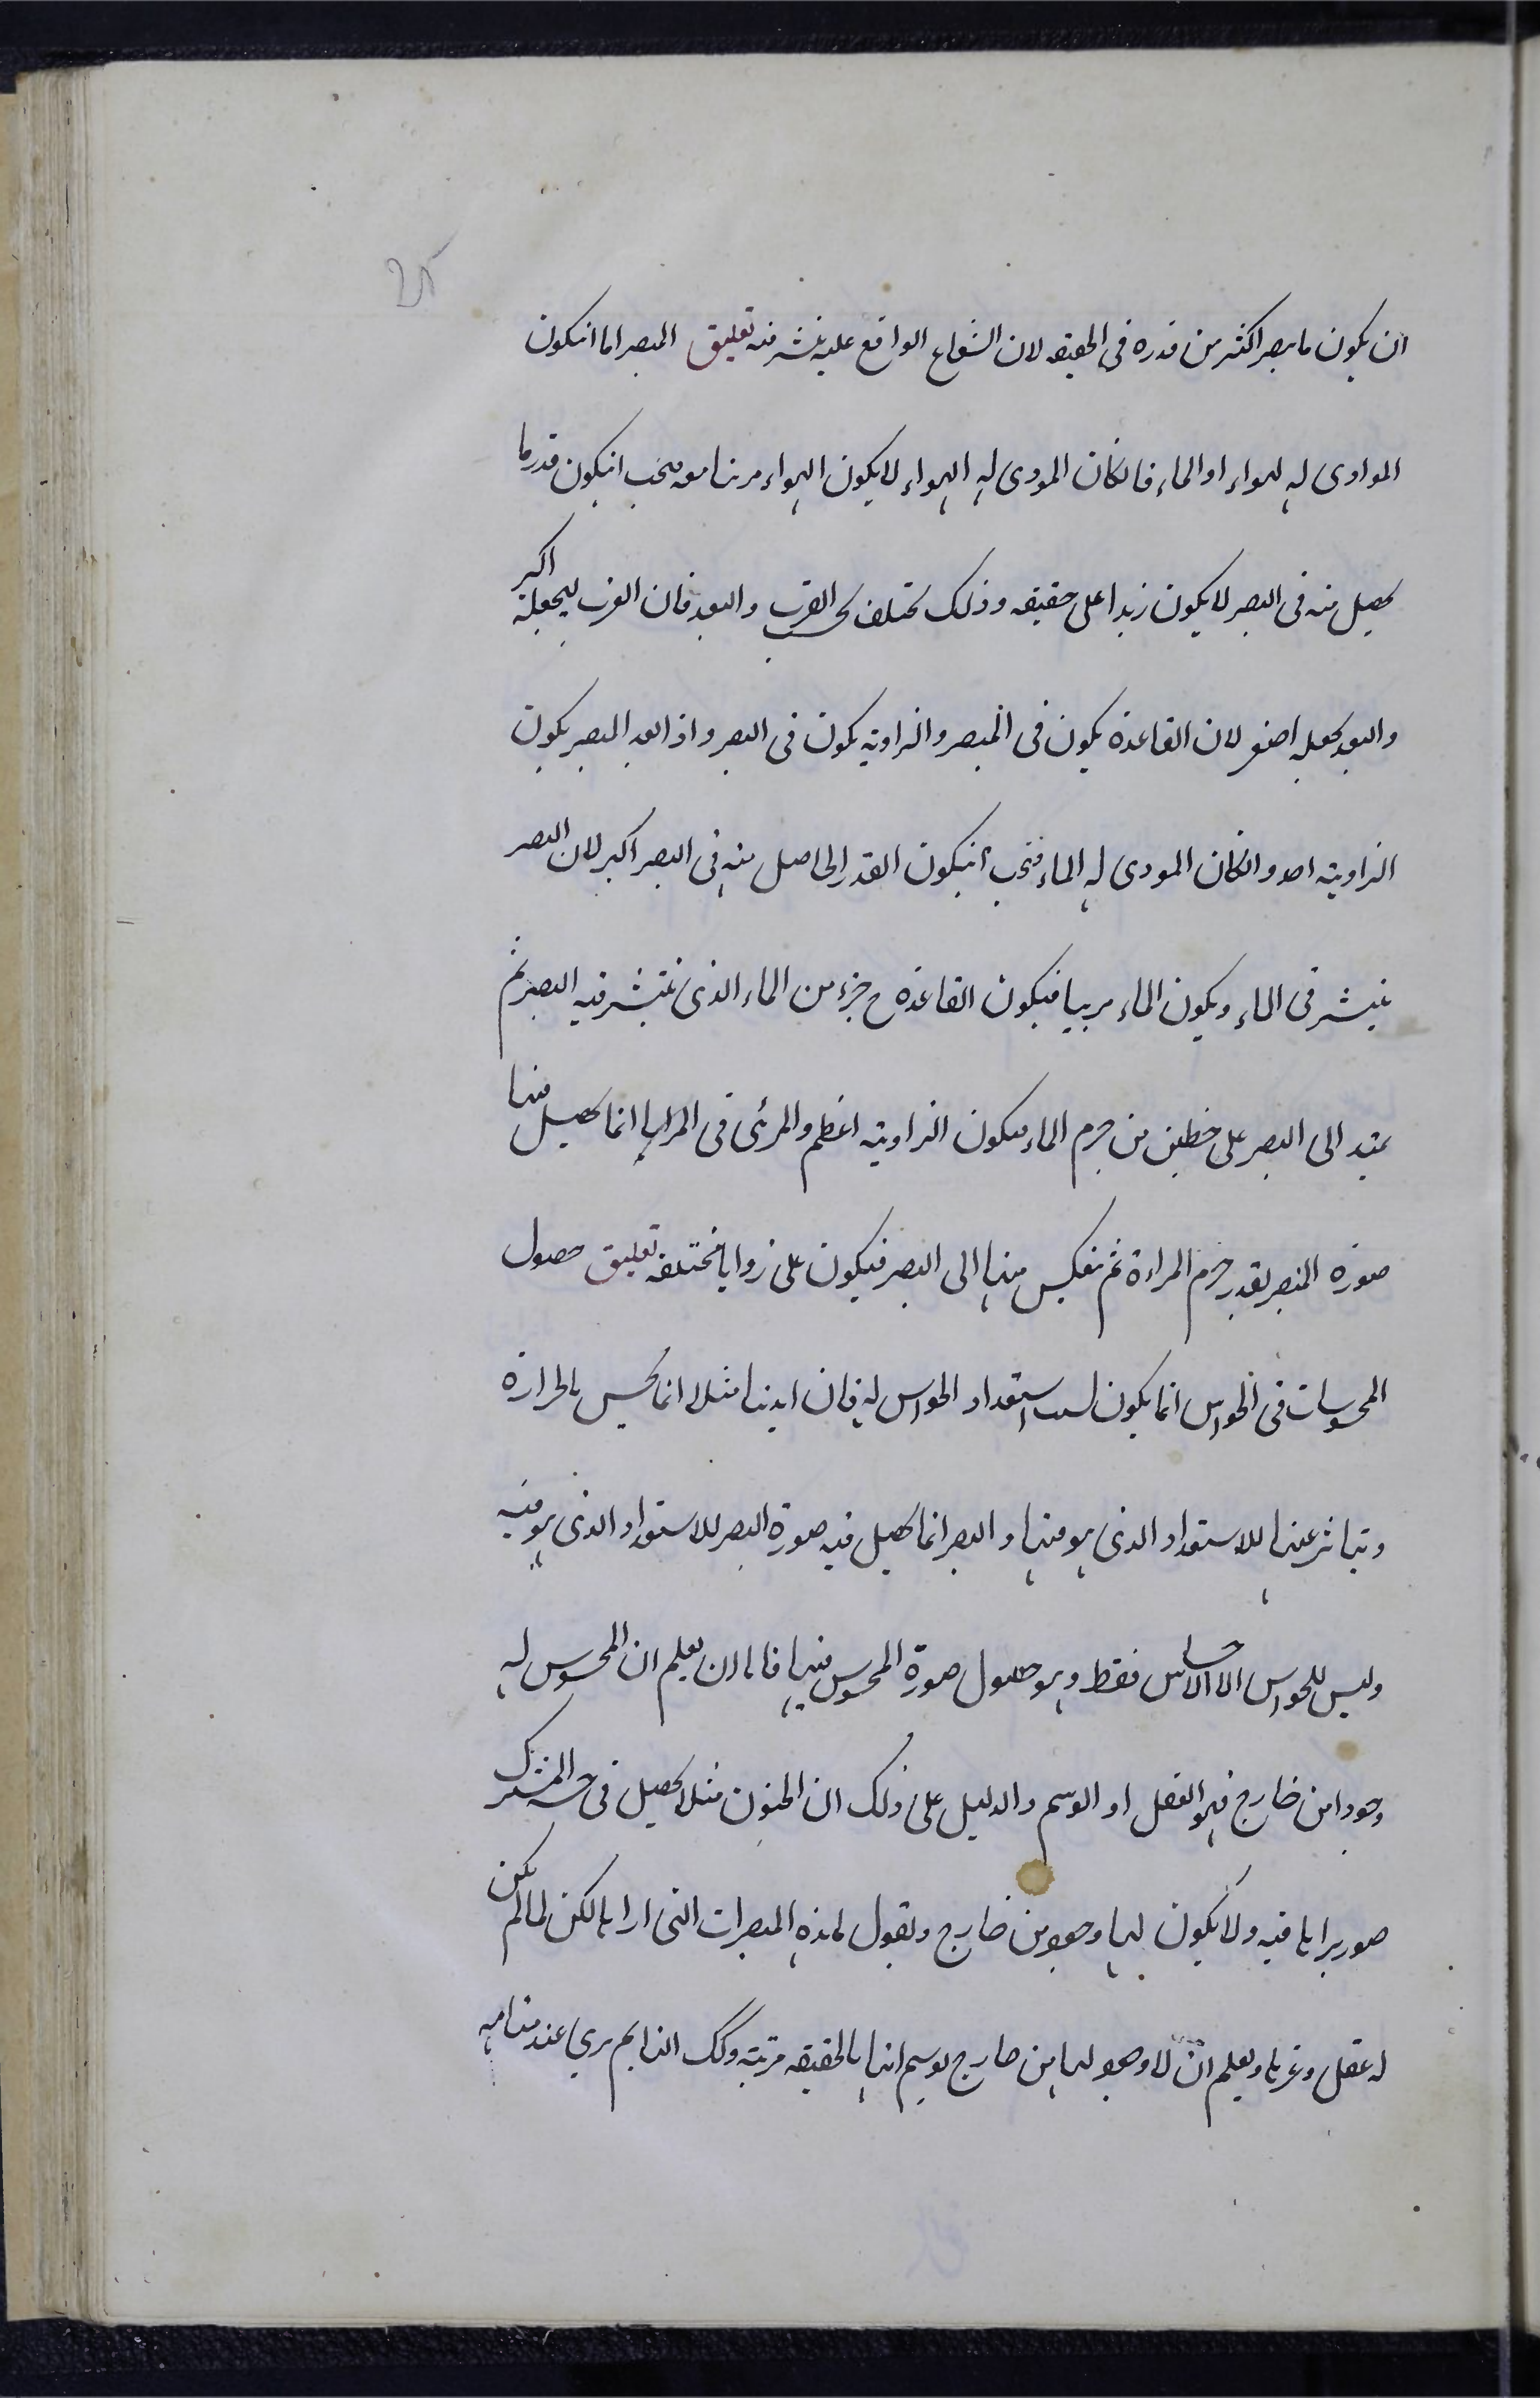 ان يكون ما يبصر اكثر من قدره في الحقيقه لان الشعاع الواقع عليه ينتشر فيه تعليق المبصر اما انيكون
الموادى له الهواء او الماء فانكان المودى له الهواء لا يكون الهواء مرئيا معه فيجب انيكون قدر ما
يحصل منه فى البصر لا يكون زيدا على حقيقه وذلك يختلف بحسب القرب والبعد فان القرب ليجعله اكبر
والبعد يجعله اصغر لان القاعدة يكون فى المبصر والزاوية يكون فى البصر واذا بعد المبصر يكون
الزاوية احد وانكان المودى له الماء فيجب انيكون القدر الحاصل منه فى البصر اكبر لان البصر
ينتشر فى الماء ويكون الماء مرييا فيكون القاعدة ح جزء من الماء الذى ينتشر فيه البصر ثم
يمتد الى البصر على خطين من جرم الماء فيكون الزاوية اعظم والمرئى فى المرايا انما يحصل فيها
صورة المبصر بقدر جرم المراءة ثم ينعكس منها الى البصر فيكون على زوايا مختلفه تعليق حصول
المحسوسات فى الحواس انما يكون لسبب استعداد الحواس له فان ايدينا مثلا انما يحس بالحرارة
ويتاثر عنها للاستعداد الذى هو فيها والبصر انما يحصل فيه صورة البصر للاستعداد الذى هو فيه
وليس للحواس الا الاحساس فقط وهو حصول صورة المحسوس فيها فاما ان يعلم ان المحسوس له
وجودا من خارج فهو العقل او الوهم والدليل على ذلك ان المجنون مثلا يحصل فى حسه المشترك
صور يراها فيه ولا يكون لها وجود من خارج ويقول ما هذه المبصرات التى اراها لكن لما لم يكن
له عقل ويعلم ان لا وجود لها من خارج توهم انها بالحقيقه مرئية وكك النايم يرى عند منامه